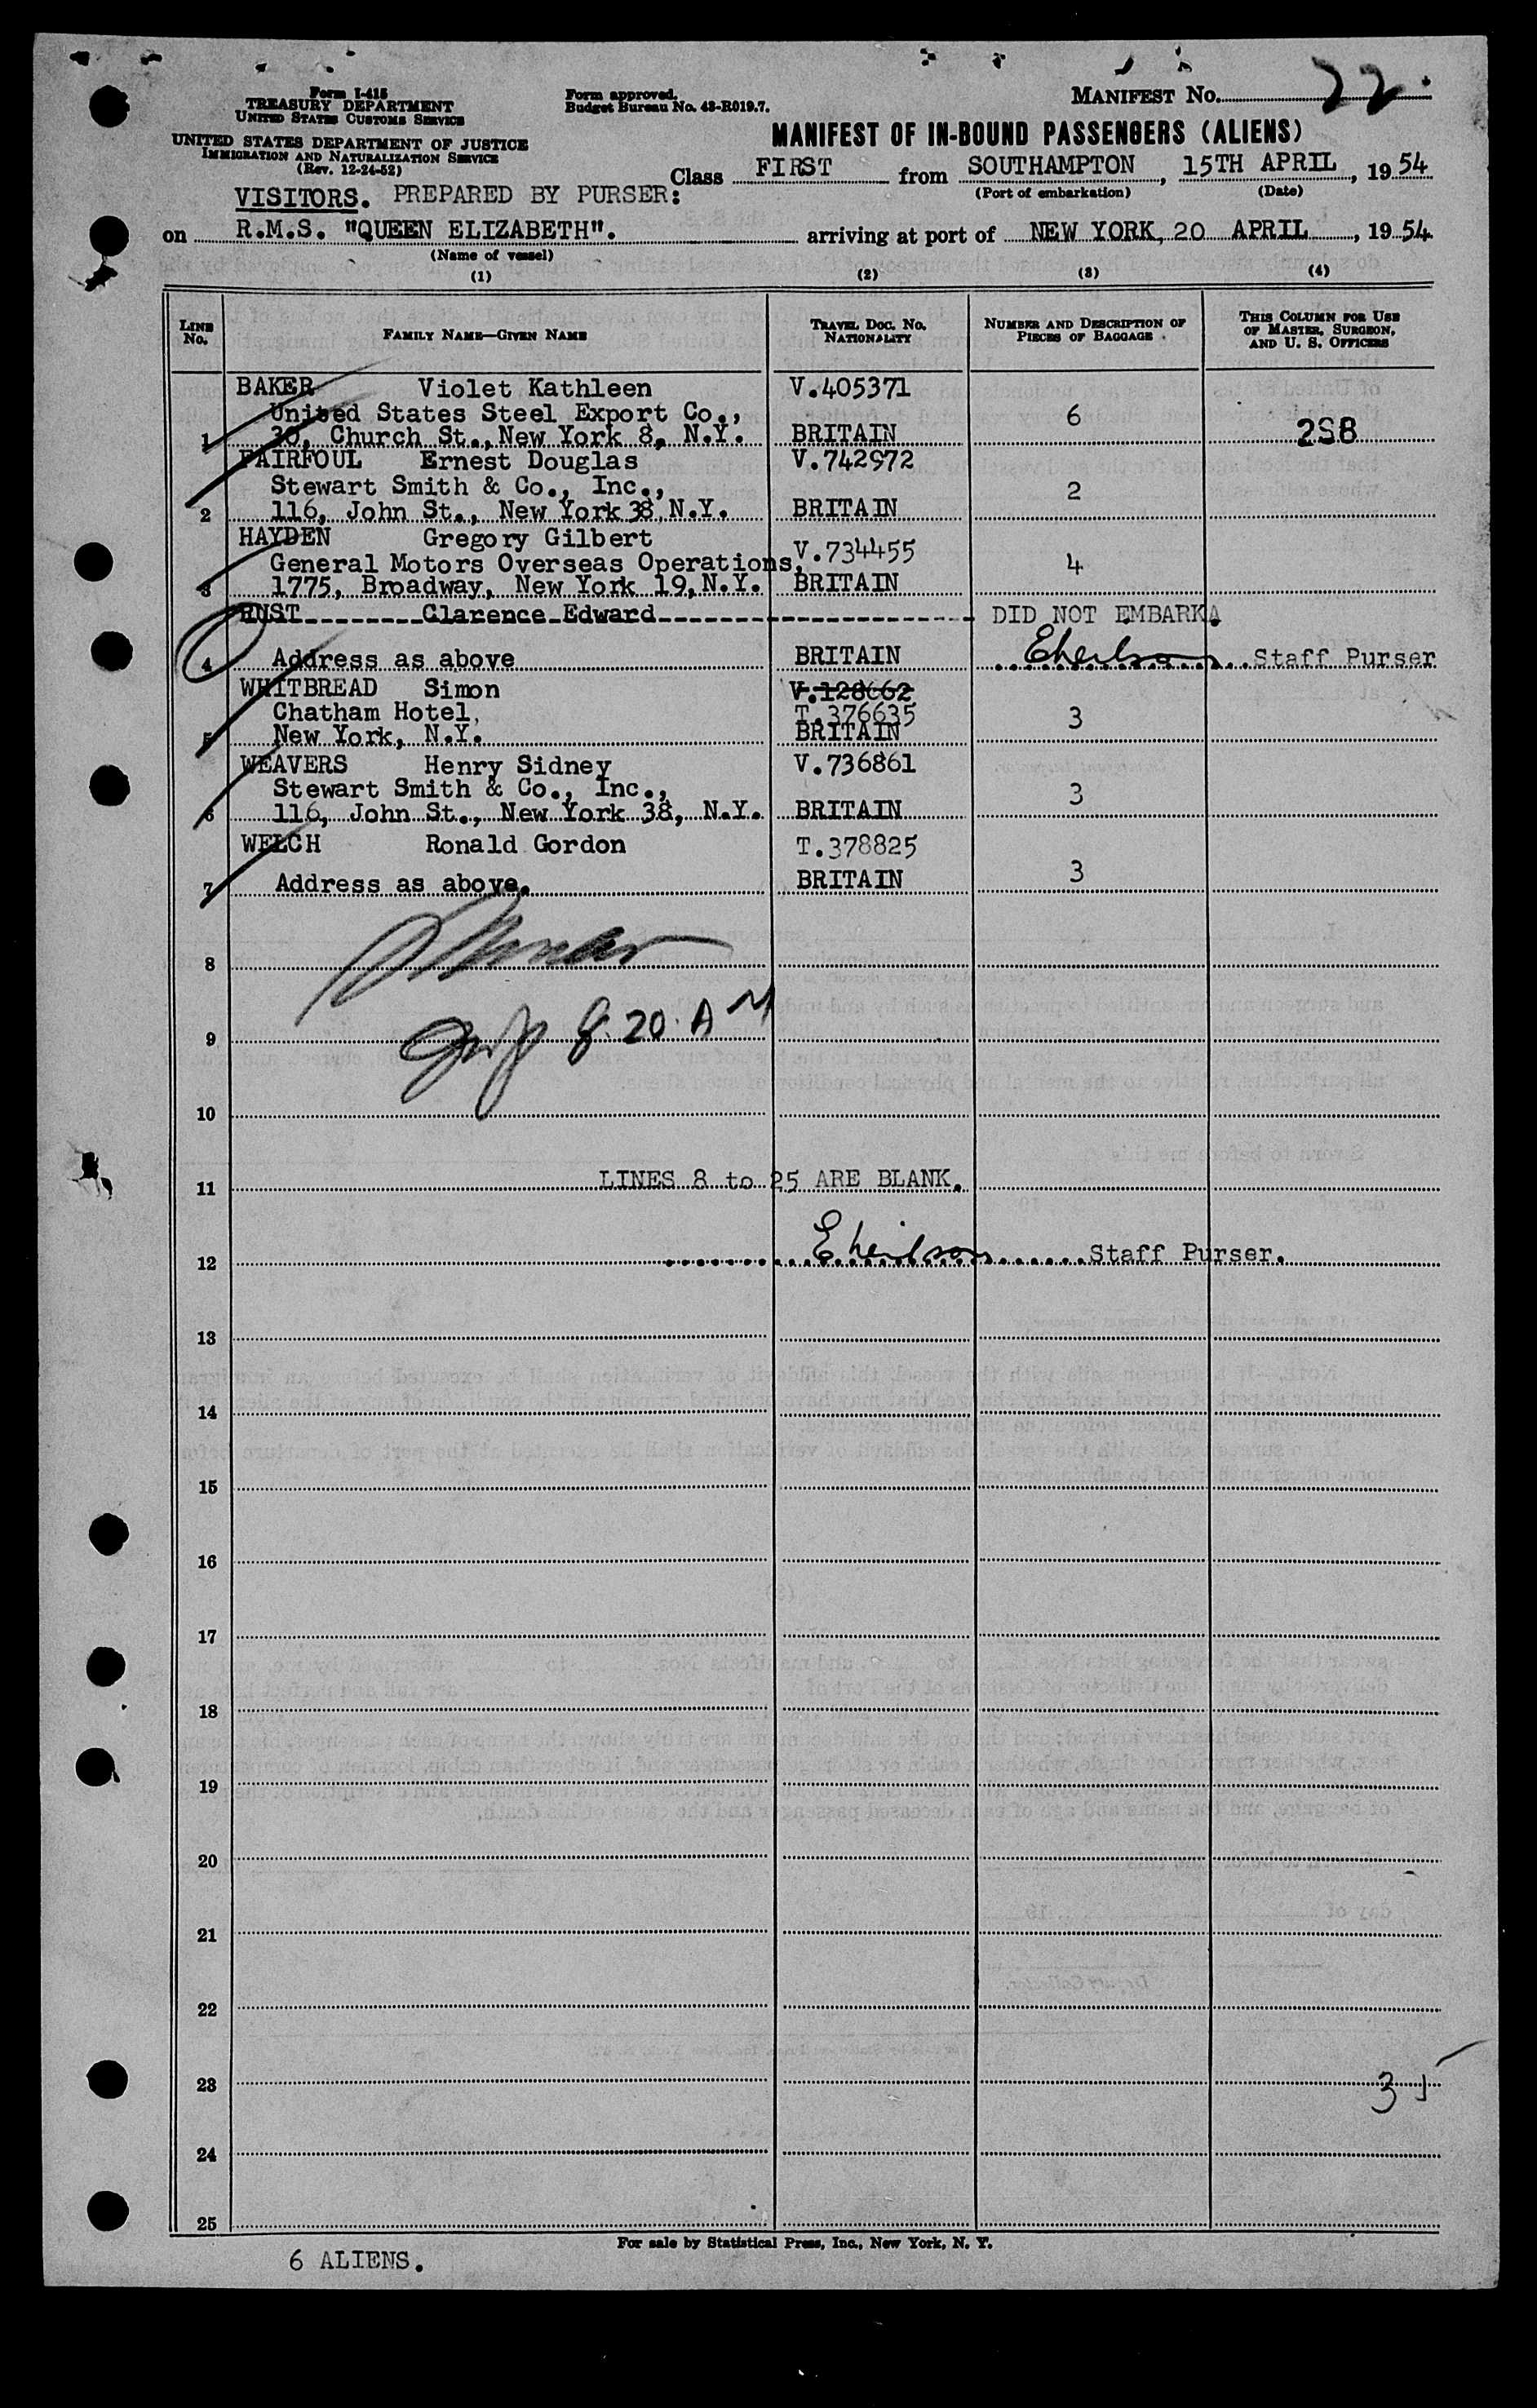 Form I-415
TREASURY DEPARTMENT
UNITED STATES CUSTOMS SERVICE
UNITED STATES DEPARTMENT OF JUSTICE
IMMIGRATION AND NATURALIZATION SERVICE
(Rev. 12-24-52)
Form approved.
Budget Bureau No. 43-R019.7.
MANIFEST NO. 22
MANIFEST OF IN-BOUND PASSENGERS (ALIENS)
Class FIRST from SOUTHAMPTON, 15TH APRIL, 1954
(Port of embarkation) (Date)
VISITORS. PREPARED BY PURSER:
on R.M.S. "QUEEN ELIZABETH". arriving at port of NEW YORK, 20 APRIL, 1954
(Name of vessel)
(1) (2) (3) (4)
LINE No. FAMILY NAME—GIVEN NAME TRAVEL DOC. NO. NATIONALITY NUMBER AND DESCRIPTION OF PIECES OF BAGGAGE THIS COLUMN FOR USE OF MASTER, SURGEON, AND U. S. OFFICERS
BAKER Violet Kathleen V.405371
United States Steel Export Co., 6
1 30, Church St., New York 8, N.Y. BRITAIN 2S8
FAIRFOUL Ernest Douglas V.742972
Stewart Smith & Co., Inc., 2
2 116, John St., New York 38, N.Y. BRITAIN
HAYDEN Gregory Gilbert V.734455
General Motors Overseas Operations, 4
3 1775, Broadway, New York 19, N.Y. BRITAIN
RUST Clarence Edward DID NOT EMBARK
4 Address as above BRITAIN Staff Purser
WHITBREAD Simon V.128662
Chatham Hotel, T.376635 3
5 New York, N.Y. BRITAIN
WEAVERS Henry Sidney V.736861
Stewart Smith & Co., Inc., 3
6 116, John St., New York 38, N.Y. BRITAIN
WELCH Ronald Gordon T.378825
7 Address as above. BRITAIN 3
8
9 8.20 AM
10
11 LINES 8 to 25 ARE BLANK.
12 Staff Purser.
13
14
15
16
17
18
19
20
21
22
23
24
25
For sale by Statistical Press, Inc., New York, N. Y.
6 ALIENS.